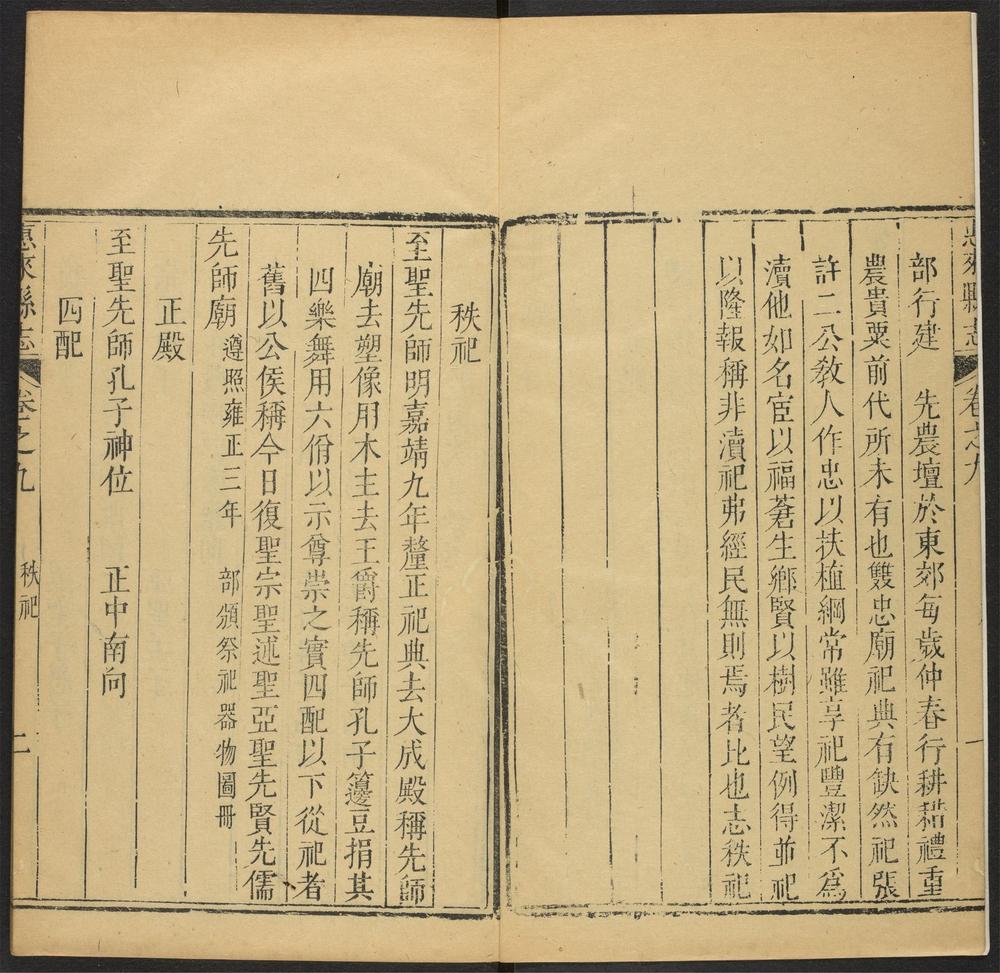 惠來縣志 卷之九 一
部行建 先農壇於東郊每歲仲春行耕耤禮重
農貴粟前代所未有也雙忠廟祀典有缺然祀張
許二公教人作忠以扶植綱常雖享祀豐潔不為
瀆他如名宦以福蒼生鄉賢以樹民望例得並祀
以隆報稱非瀆祀弗經民無則焉者比也志秩祀
秩祀
至聖先師明嘉靖九年釐正祀典去大成殿稱先師
廟去塑像用木主去王爵稱先師孔子籩豆捐其
四樂舞用六佾以示尊崇之實四配以下從祀者
舊以公侯稱今日復聖宗聖述聖亞聖先賢先儒
先師廟 遵照雍正三年 部頒祭祀器物圖冊
正殿
至聖先師孔子神位 正中南向
四配
惠來縣志 卷之九 秩祀 二